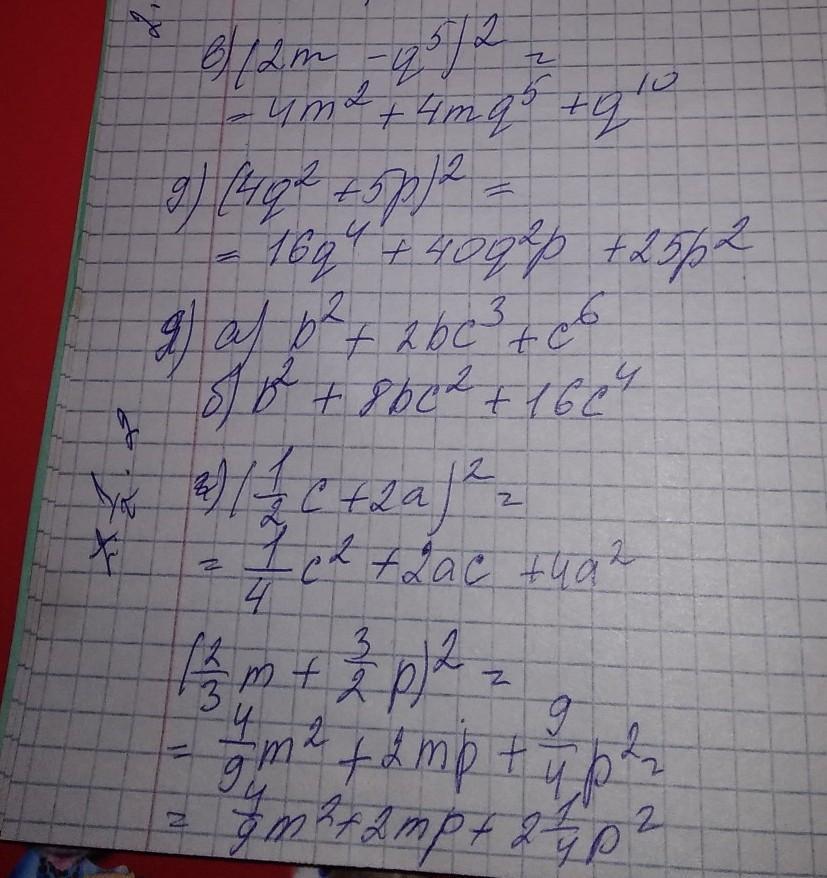 в) (2m - q⁵)² =
= 4m² + 4mq⁵ + q¹⁰
д) (4q² + 5p)² =
= 16q⁴ + 40q²p + 25p²
а) b² + 2bc³ + c⁶
б) b² + 8bc² + 16c⁴
(1/2 c + 2a)² =
= 1/4 c² + 2ac + 4a²
(2/3 m + 3/2 p)² =
= 4/9 m² + 2mp + 9/4 p² =
= 4/9 m² + 2mp + 2 1/4 p²